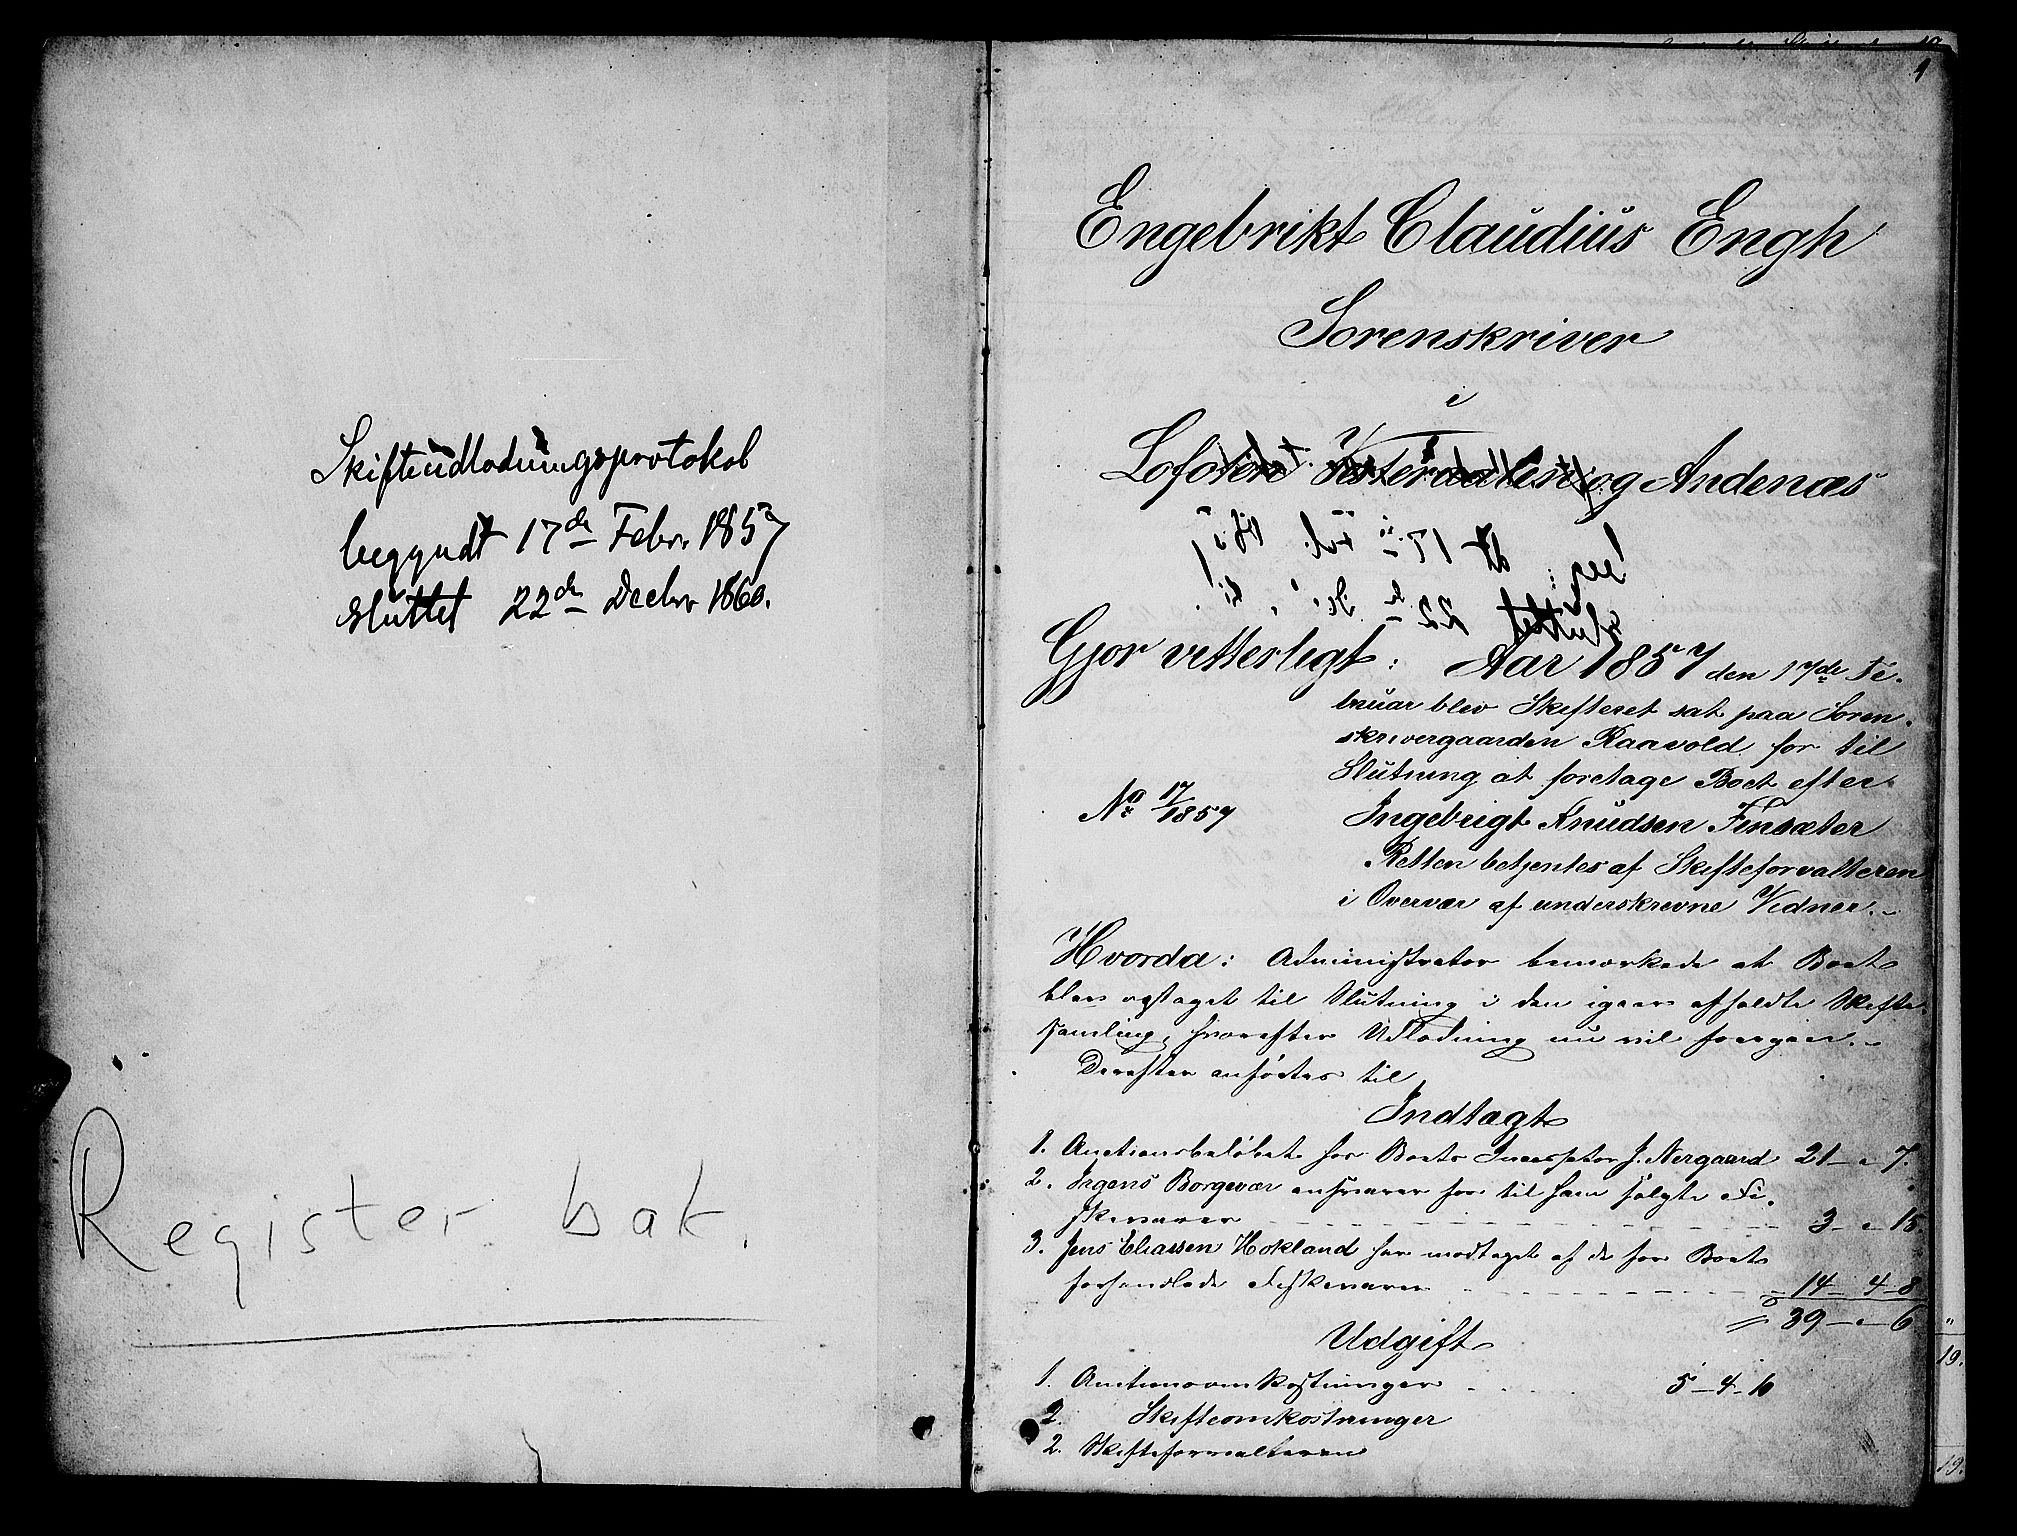 Skifteudlodningsprotokol
begyndt 17de Febr. 1857
sluttet 22de Decbr 1860.
Register bak.
1
Engebrikt Claudius Engh
Sorenskriver
i
Lofoten Vesteraalen og Andenæs
Gjør vitterligt: Aar 1857 den 17de Fe-
bruar blev Skifteret sat paa Soren-
skrivergaarden Raavold for til
Slutning at foretage Boet efter
No 17/1857 Ingebrigt Knudsen Finsæter
Retten betjentes af Skifteforvalteren
i Overvær af underskrevne Vidner.
Hvorda: Administrator bemærkede at Boet
blev optaget til Slutning i den igaar afholdte Skifte-
samling, hvorefter Udlodning nu vil foregaae.
Derefter anførtes til
Indtægt
1. Auctionsbeløbet hos Boets Incassator J. Nergaard 21 - " 7.
2. Irgens Borgevær ansvarer for til ham solgte Fi-
skevarer 3 - " 15
3. Jens Eliassen Hokland har modtaget af de for Boet
forhandlede Fiskevarer 14 - 4 - 8
39 - " - 6
Udgift
1. Auctionsomkostninger 5 - 4 - 6
2. Skifteomkostninger
2. Skifteforvalteren
19.
19.